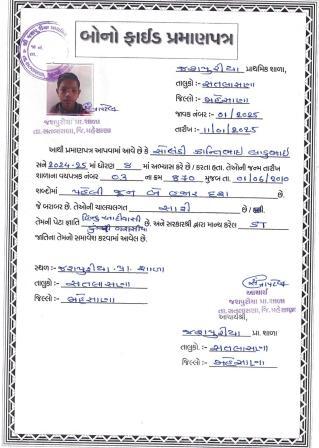 બોનો ફાઈડ પ્રમાણપત્ર
જશપુરીયા પ્રાથમિક શાળા,
તાલુકો :- સતલાસણા
જિલ્લો :- મહેસાણા
જાવક નંબર :- 01/2025
તારીખ :- 11/01/2025
જશપુરીયા પ્રા. શાળા
તા. સતલાસણા, જિ. મહેસાણા
આથી પ્રમાણપત્ર આપવામાં આવે છે કે સોલંકી કાન્તિભાઇ
સને 2024-25 માં ધોરણ 8 માં અભ્યાસ કરે છે / કરતા હતા. તેઓની જન્મ તારીખ
શાળાના વયપત્રક નંબર 03 ના ક્રમ 870 મુજબ તા. 01/06/2010
શબ્દોમાં પહેલી જૂન બે હજાર દશ છે.
જે બરાબર છે. તેઓની ચાલચલગત સારી છે /
તેમની પેટા જ્ઞાતિ હિન્દુ છે. અને સરકારશ્રી દ્વારા માન્ય કરેલ
જાતિના તેમનો સમાવેશ કરવામાં આવેલ છે.
સ્થળ :- જશપુરીયા પ્રા. શાળા
તાલુકો :- સતલાસણા
જિલ્લો :- મહેસાણા
આચાર્ય
જશપુરીયા પ્રા. શાળા
તા. સતલાસણા, જિ. મહેસાણા
આચાર્યશ્રી,
જશપુરીયા પ્રા. શાળા
તાલુકો. :- સતલાસણા
જિલ્લો. :- મહેસાણા